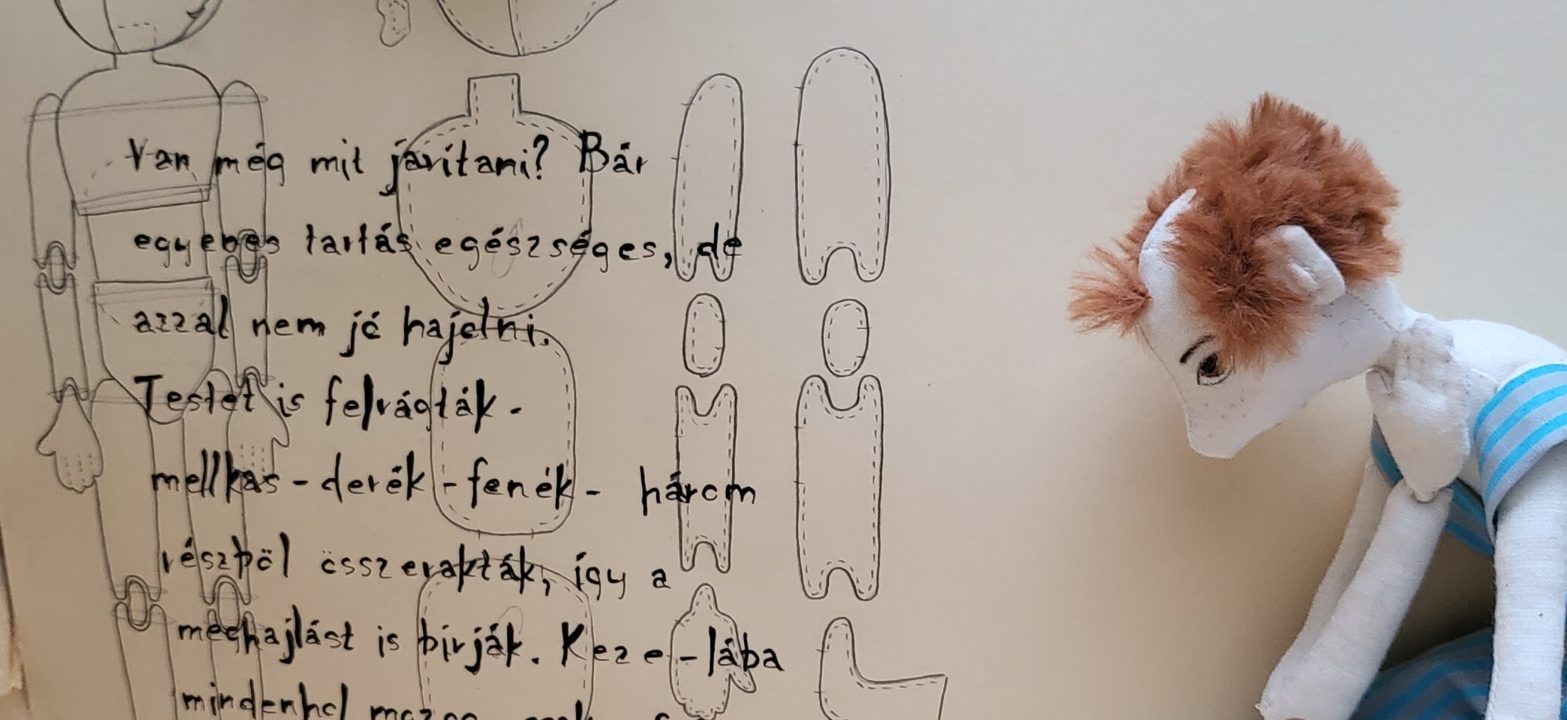 Van még mit javítani? Bár
egyenes tartás egészséges, de
azzal nem jó hajolni.
Testét is felvágták -
mellkas - derék - fenék - három
részből összerakták, így a
meghajlást is bírják. Keze - lába
mindenhol mozog